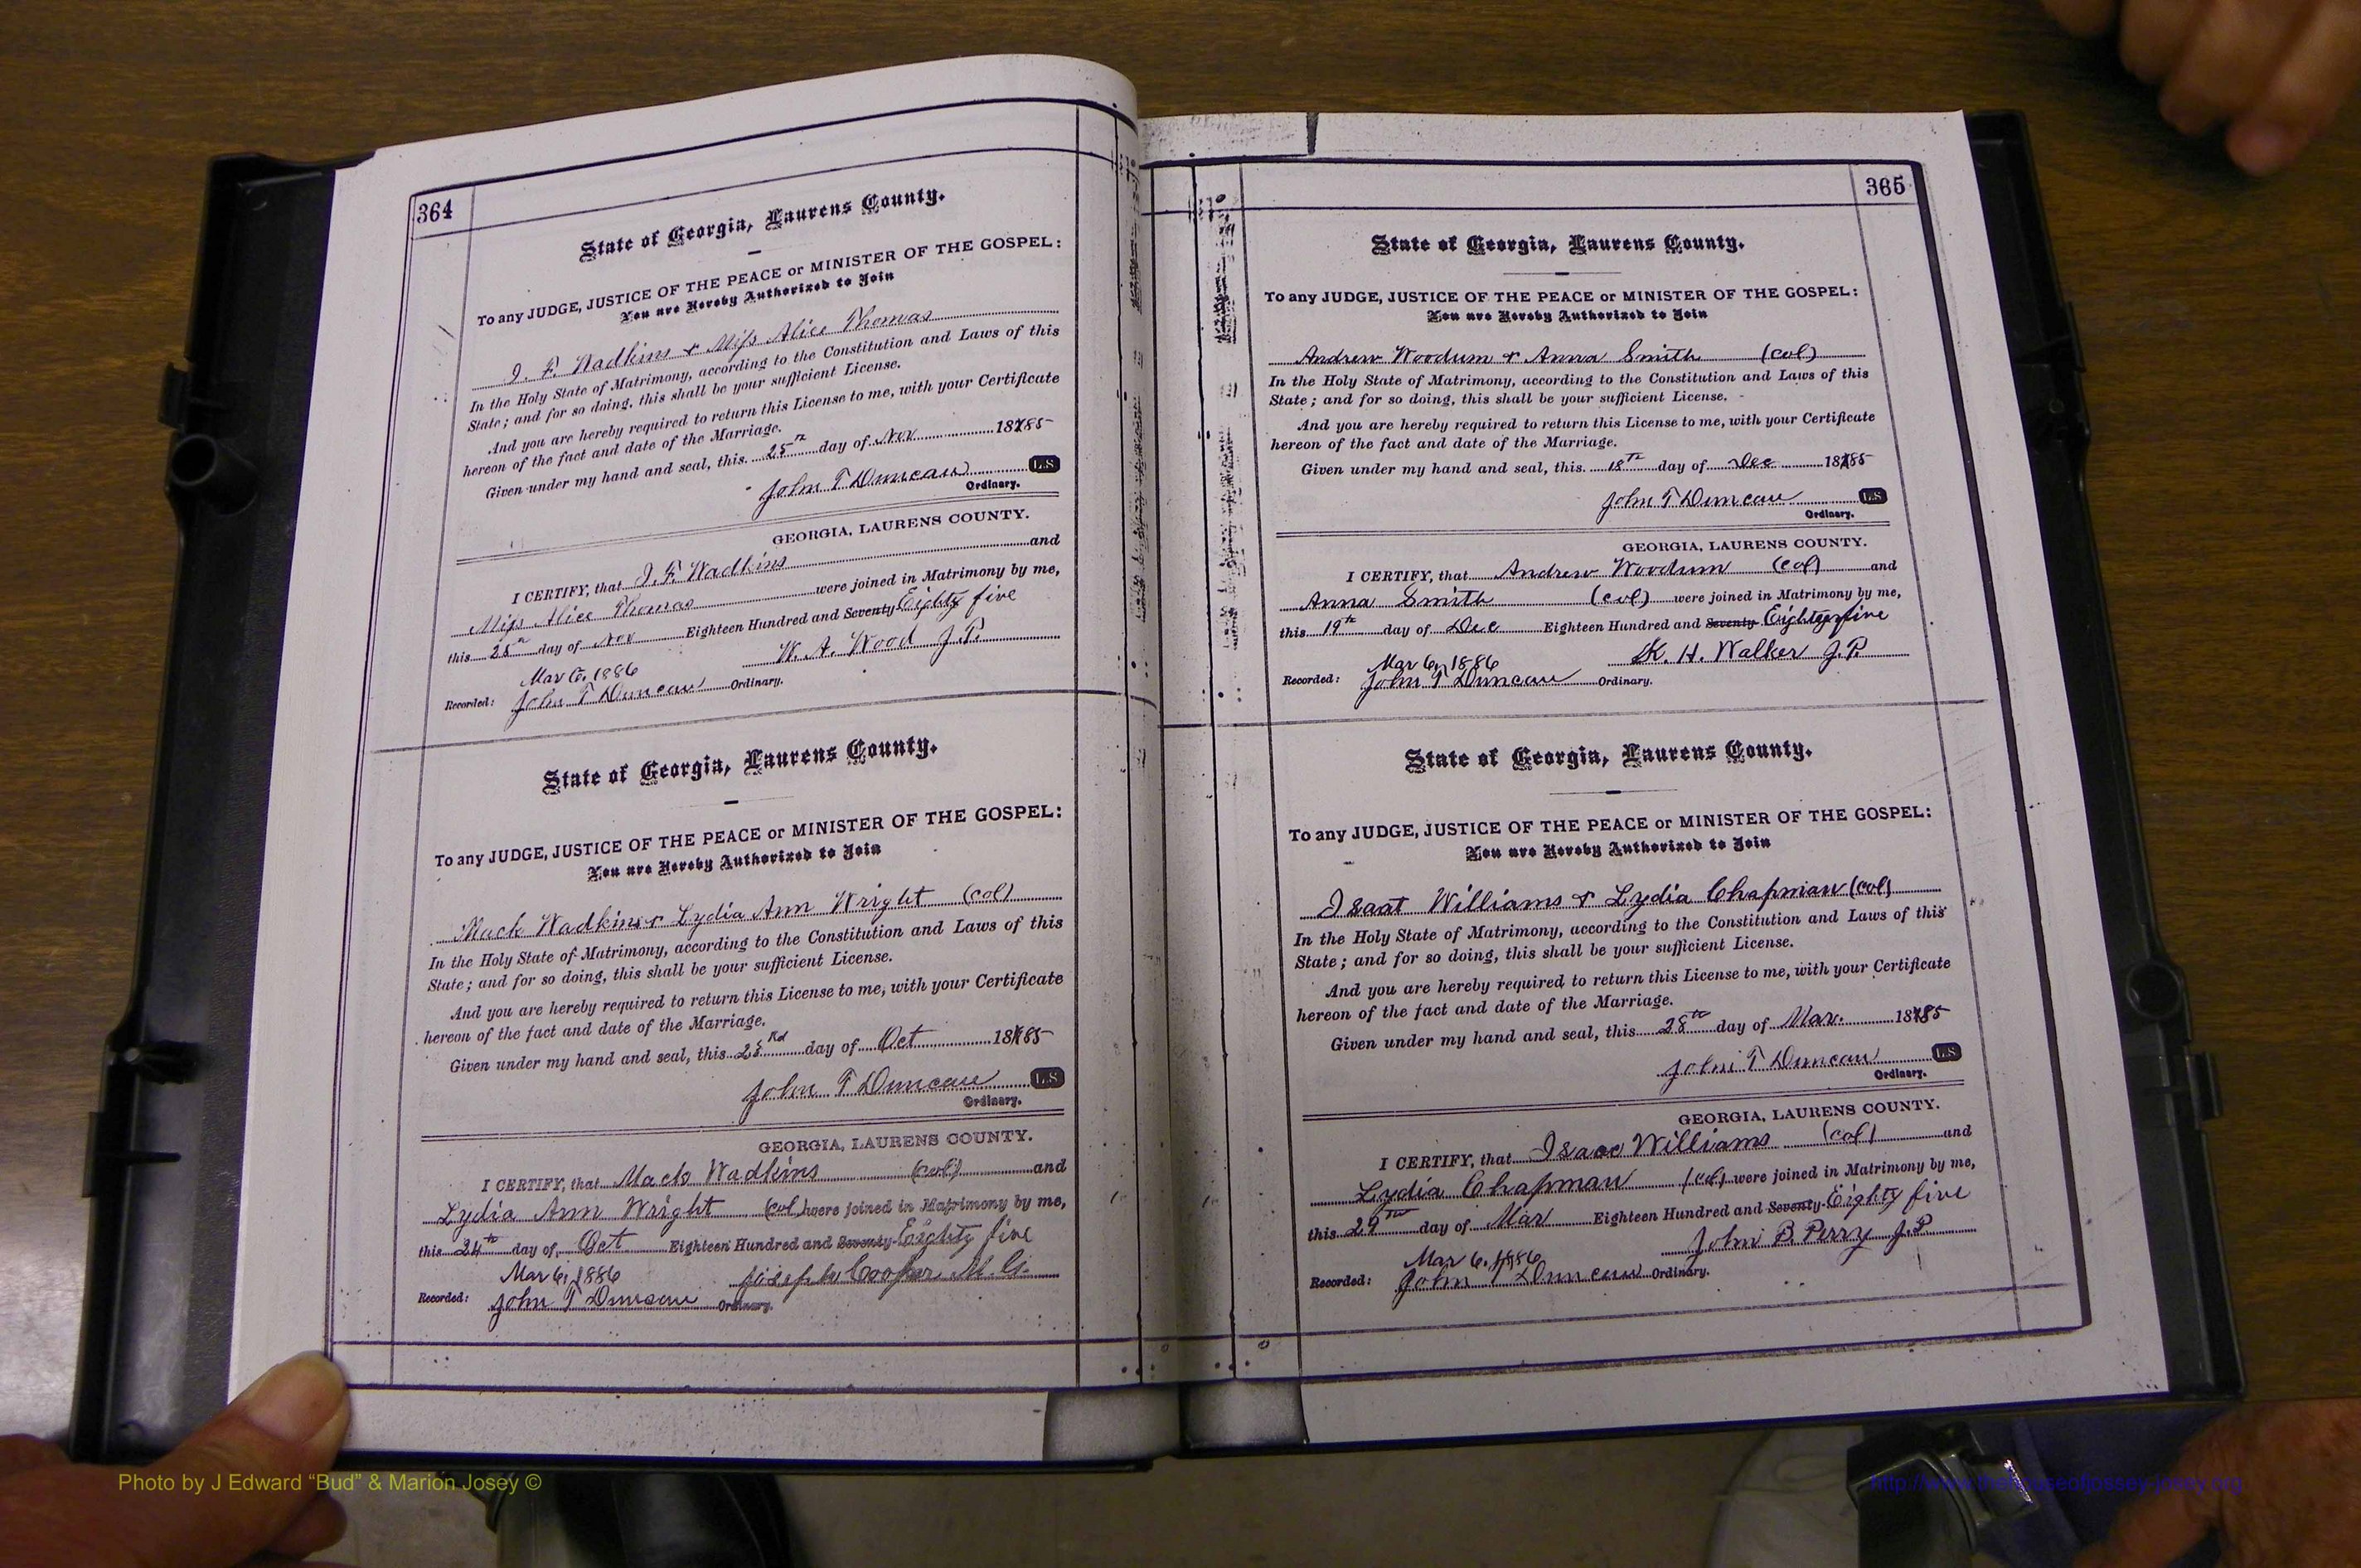 364
State of Georgia, Laurens County.
To any JUDGE, JUSTICE OF THE PEACE or MINISTER OF THE GOSPEL:
You are Hereby Authorized to Join
J. F. Wadkins & Miss Alice Thomas
In the Holy State of Matrimony, according to the Constitution and Laws of this
State; and for so doing, this shall be your sufficient License.
And you are hereby required to return this License to me, with your Certificate
hereon of the fact and date of the Marriage.
Given under my hand and seal, this 25th day of Nov 1885
John T Duncan L.S
Ordinary.
GEORGIA, LAURENS COUNTY.
I CERTIFY, that J. F. Wadkins and
Miss Alice Thomas were joined in Matrimony by me,
this day of Nov Eighteen Hundred and Seventy Eighty five
Mar 6, 1886 W. A. Wood J.P.
Recorded: John T Duncan Ordinary.
State of Georgia, Laurens County.
To any JUDGE, JUSTICE OF THE PEACE or MINISTER OF THE GOSPEL:
You are Hereby Authorized to Join
Mack Wadkins & Lydia Ann Wright (col)
In the Holy State of Matrimony, according to the Constitution and Laws of this
State; and for so doing, this shall be your sufficient License.
And you are hereby required to return this License to me, with your Certificate
hereon of the fact and date of the Marriage.
Given under my hand and seal, this day of Oct 1885
John T Duncan L.S
Ordinary.
GEORGIA, LAURENS COUNTY.
I CERTIFY, that Mack Wadkins (col) and
Lydia Ann Wright (col) were joined in Matrimony by me,
this 24th day of Oct Eighteen Hundred and Seventy Eighty five
Mar 6, 1886 Joseph Cooper M.G.
Recorded: John T Duncan Ordinary.
365
State of Georgia, Laurens County.
To any JUDGE, JUSTICE OF THE PEACE or MINISTER OF THE GOSPEL:
You are Hereby Authorized to Join
Andrew Woodum & Anna Smith (col)
In the Holy State of Matrimony, according to the Constitution and Laws of this
State; and for so doing, this shall be your sufficient License.
And you are hereby required to return this License to me, with your Certificate
hereon of the fact and date of the Marriage.
Given under my hand and seal, this 18th day of Dec 1885
John T Duncan L.S
Ordinary.
GEORGIA, LAURENS COUNTY.
I CERTIFY, that Andrew Woodum (col) and
Anna Smith (col) were joined in Matrimony by me,
this 19th day of Dec Eighteen Hundred and Seventy Eighty five
Mar 6, 1886 K. H. Walker J.P.
Recorded: John T Duncan Ordinary.
State of Georgia, Laurens County.
To any JUDGE, JUSTICE OF THE PEACE or MINISTER OF THE GOSPEL:
You are Hereby Authorized to Join
Isaat Williams & Lydia Chapman (col)
In the Holy State of Matrimony, according to the Constitution and Laws of this
State; and for so doing, this shall be your sufficient License.
And you are hereby required to return this License to me, with your Certificate
hereon of the fact and date of the Marriage.
Given under my hand and seal, this 28th day of Mar. 1885
John T Duncan L.S
Ordinary.
GEORGIA, LAURENS COUNTY.
I CERTIFY, that Isaac Williams (col) and
Lydia Chapman (col) were joined in Matrimony by me,
this 29th day of Mar Eighteen Hundred and Seventy Eighty five
Mar 6, 1886 John B. Perry J.P.
Recorded: John T Duncan Ordinary.
Photo by J Edward “Bud” & Marion Josey ©
http://www.thehouseofjossey-josey.org